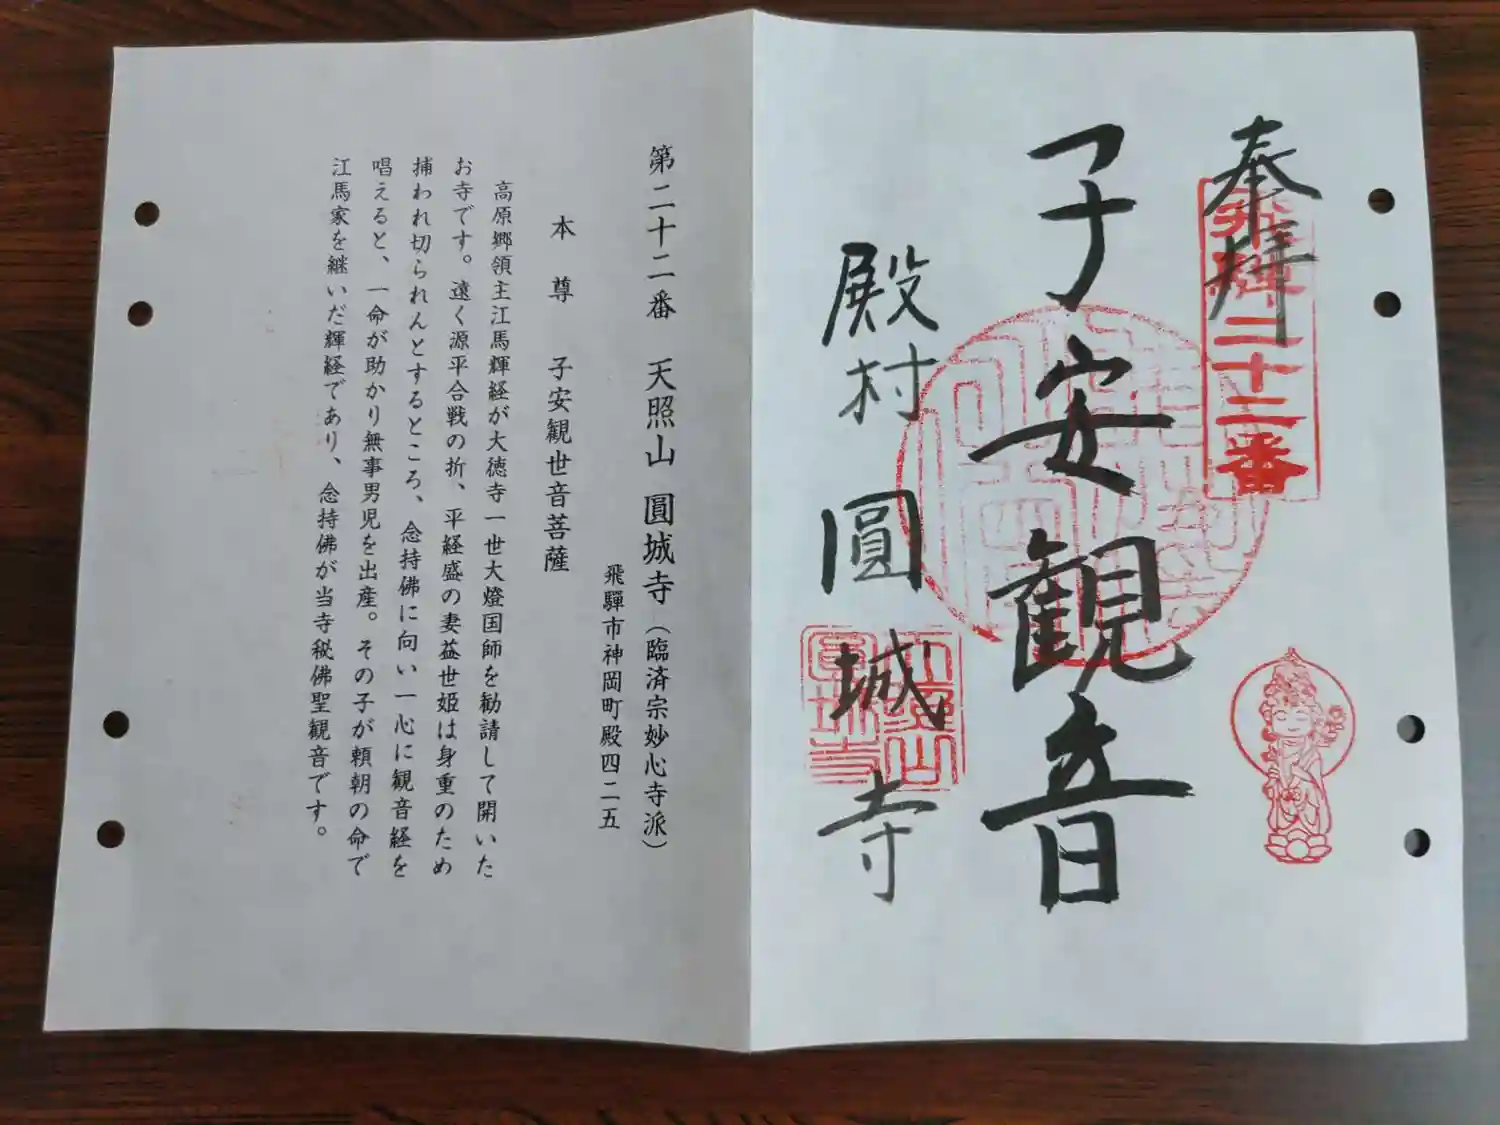 奉拝
飛騨二十二番
子安観音
殿村
圓城寺
第二十二番　天照山 圓城寺（臨済宗妙心寺派）
飛騨市神岡町殿四二五
本　尊　子安観世音菩薩
高原郷領主江馬輝経が大徳寺一世大燈国師を勧請して開いた
お寺です。遠く源平合戦の折、平経盛の妻益世姫は身重のため
捕われ切られんとするところ、念持佛に向い一心に観音経を
唱えると、一命が助かり無事男児を出産。その子が頼朝の命で
江馬家を継いだ輝経であり、念持佛が当寺秘佛聖観音です。